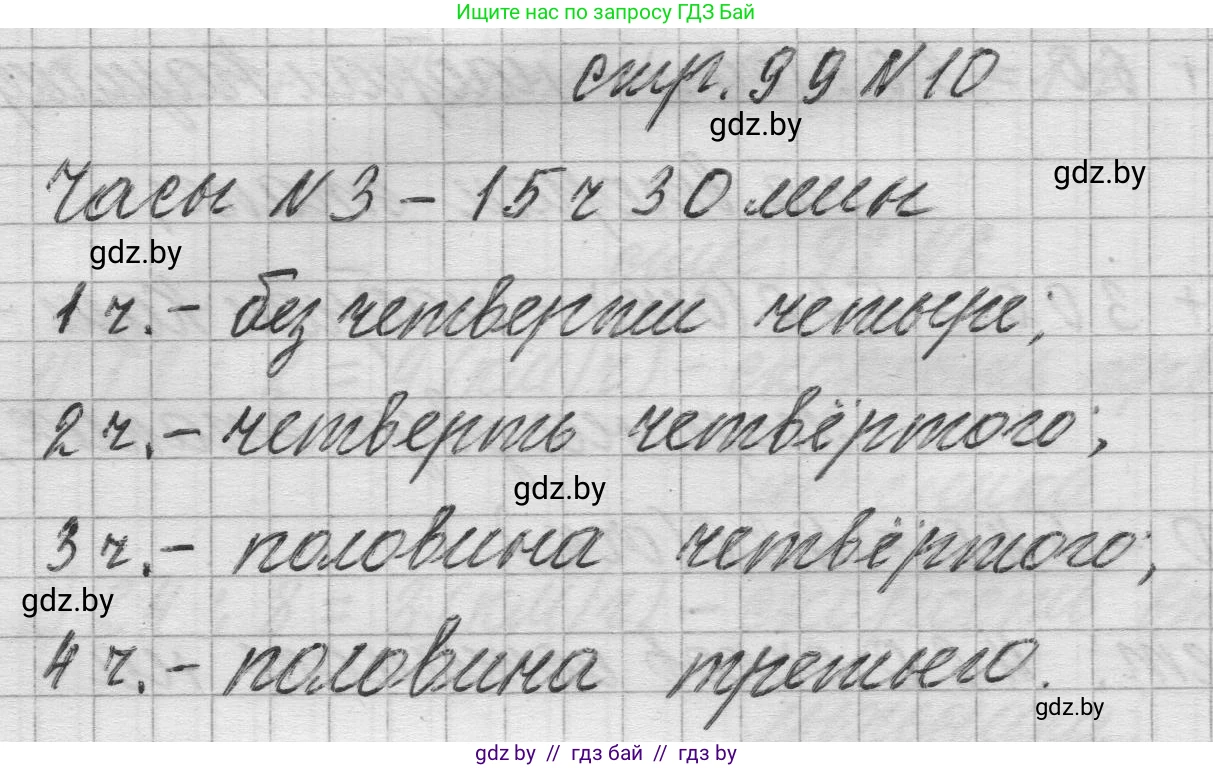 Ищите нас по запросу ГДЗ Бай
стр. 99 N 10
gdz.by
gdz.by
Часы N 3 – 15 ч 30 мин
gdz.by
1 ч. – без четверти четыре;
2 ч. – четверть четвёртого;
gdz.by
3 ч. – половина четвёртого;
gdz.by
4 ч. – половина третьего.
gdz.by
gdz.by // гдз бай // гдз by